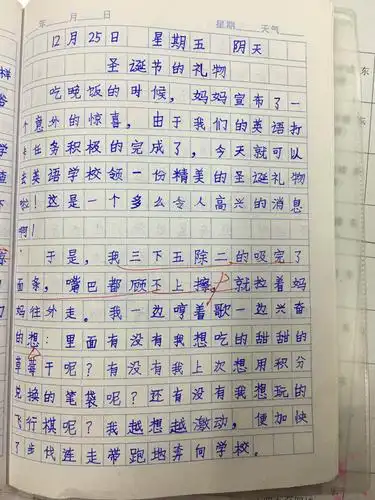 年 月 日 星期 天气
12月25日 星期五 阴天
圣诞节的礼物
吃晚饭的时候，妈妈宣布了一
个意外的惊喜，由于我们的英语打
卡任务积极的完成了，今天就可以
去英语学校领一份精美的圣诞礼物
啦！这是一个多么令人高兴的消息
啊！
于是，我三下五除二的吸完了
面条，嘴巴都顾不上擦，就拉着妈
妈往外走。我一边哼着歌一边兴奋
的想：里面有没有我想吃的甜甜的
草莓干呢？有没有我上次想用积分
兑换的笔袋呢？还有没有我想玩的
飞行棋呢？我越想越激动，便加快
了步伐连走带跑地奔向学校。